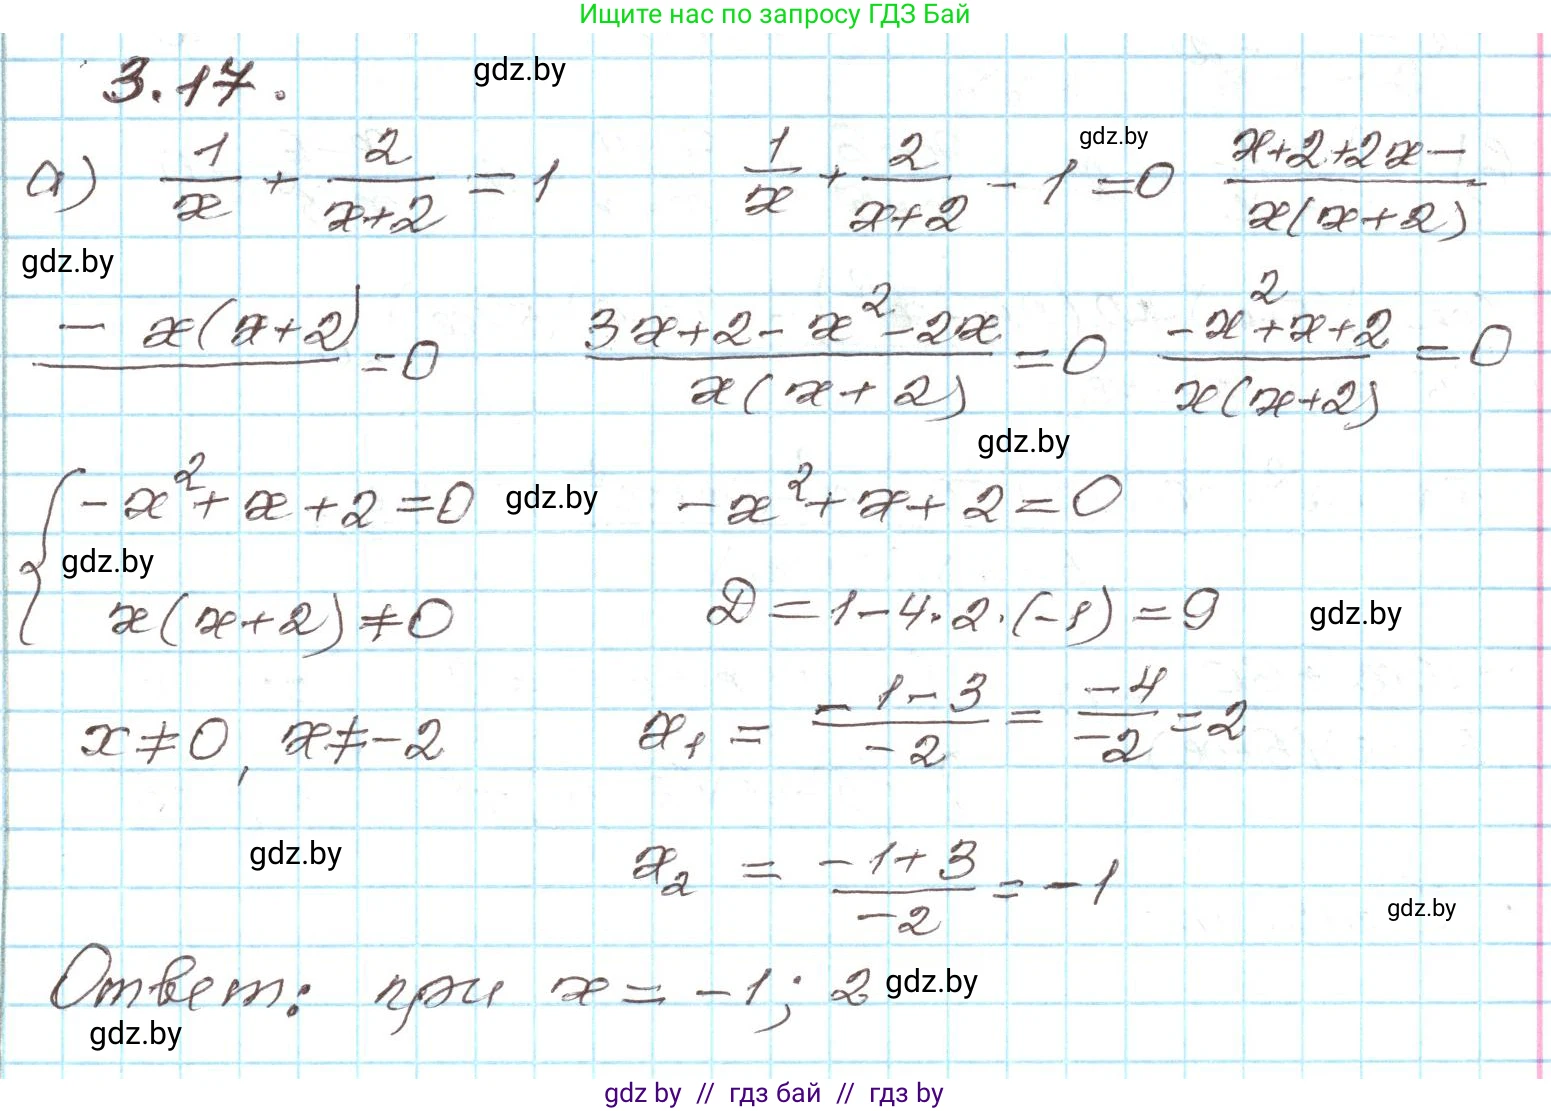 Ищите нас по запросу ГДЗ Бай
3.17. gdz.by
а) 1/x + 2/(x+2) = 1    1/x + 2/(x+2) - 1 = 0    (x+2+2x-)/(x(x+2))
gdz.by
gdz.by
(- x(x+2))/ = 0    (3x+2-x²-2x)/(x(x+2)) = 0    (-x²+x+2)/(x(x+2)) = 0
gdz.by
{ -x²+x+2=0 gdz.by -x²+x+2=0
gdz.by
x(x+2)≠0    D=1-4·2·(-1)=9 gdz.by
x≠0, x≠-2    x₁ = (-1-3)/(-2) = (-4)/(-2) = 2
gdz.by    x₂ = (-1+3)/(-2) = -1
gdz.by
Ответ: при x = -1; 2 gdz.by
gdz.by
gdz by // гдз бай // гдз by